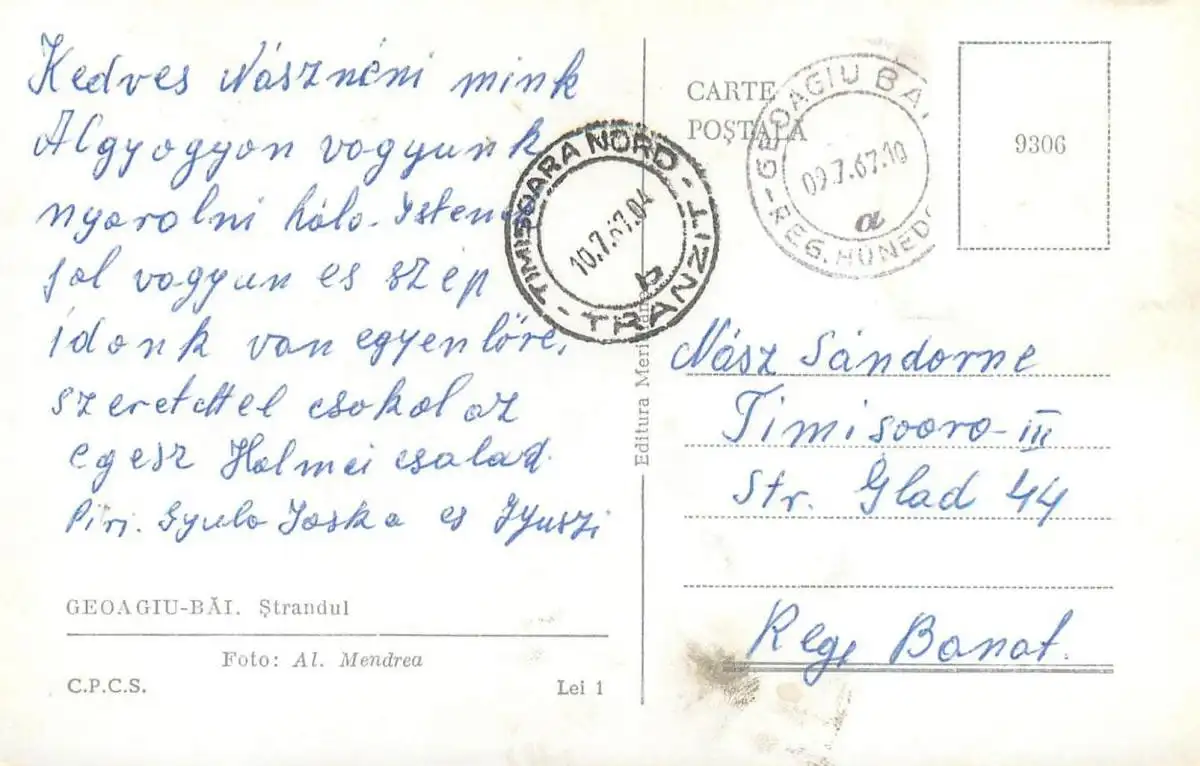 Kedves Násznéni mink
Algyogyon vagyunk
nyaralni hálo. Istenn
jol vagyun es szep
idonk van egyenlöre,
szeretettel csokol az
egesz Halmai csalad.
Piri. Gyula Joska es Gyuszi
GEOAGIU-BĂI. Ștrandul
Foto: Al. Mendrea
C.P.C.S.
Lei 1
Editura Meri
CARTE
POȘTALĂ
TIMIȘOARA NORD - TRANZIT -
10.7.67.04
b
GEOAGIU BĂ
09.7.67.10
a
REG. HUNED
9306
Nász Sándorne
Timisoara-III
Str. Glad 44
Rege Banat.